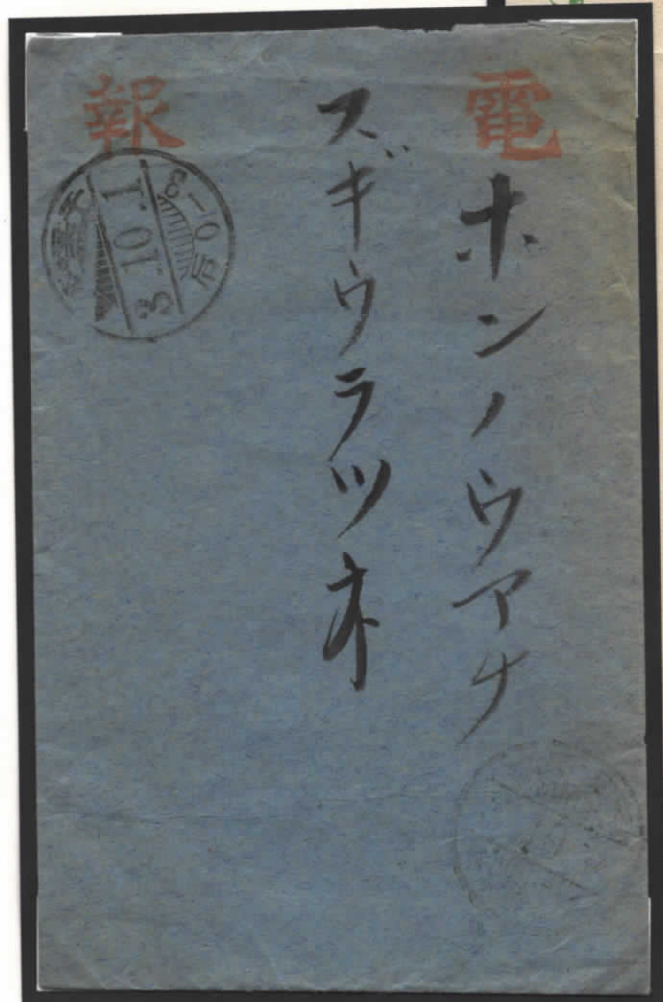 電報
ホンノウアナ
スギウラツネ
3.10.1
后0-3